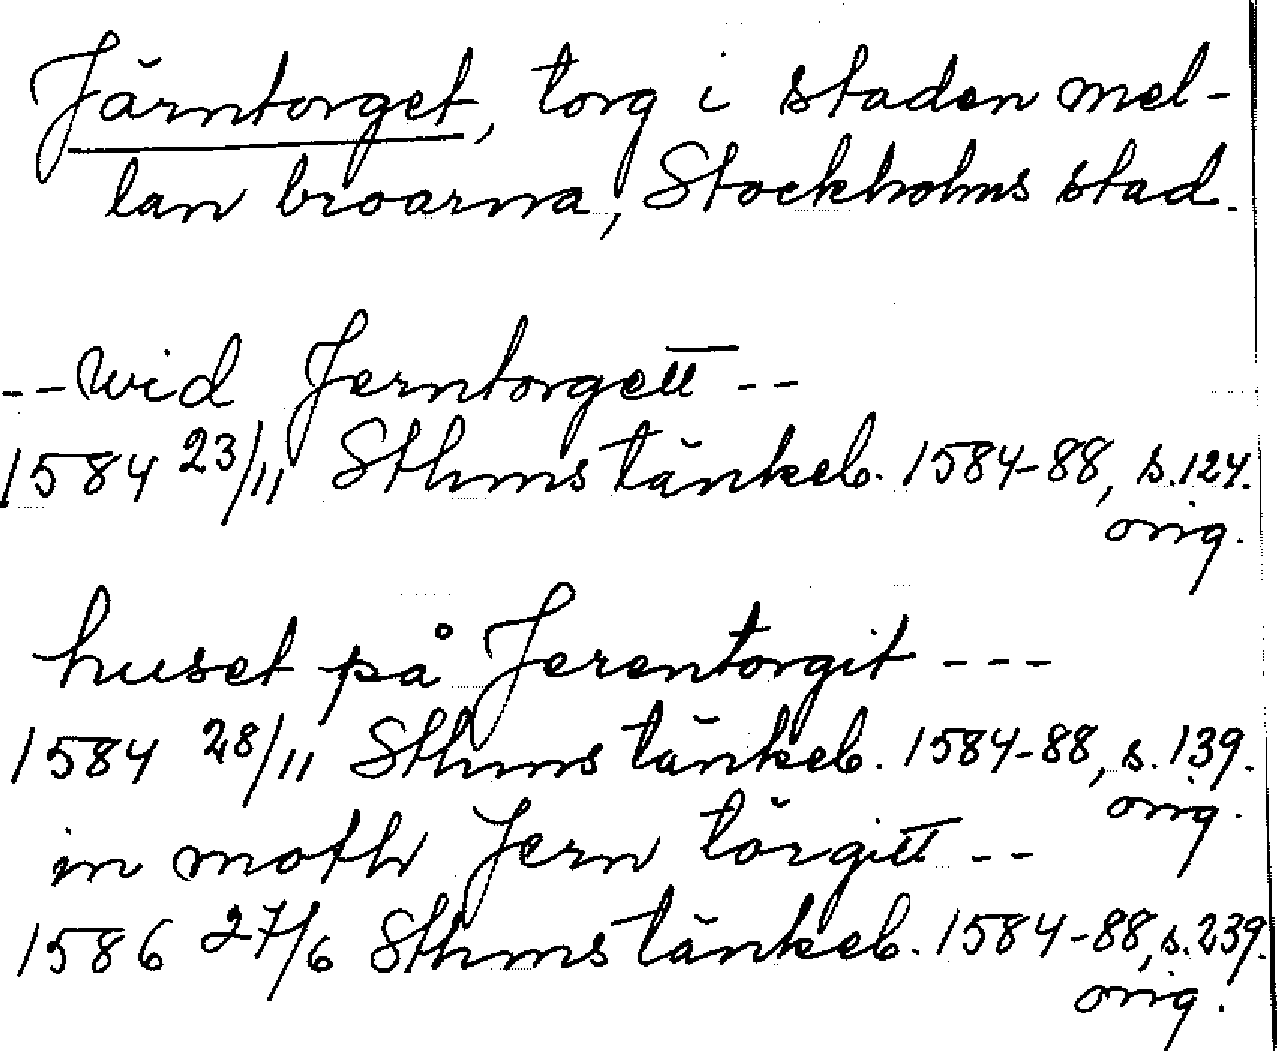 Järntorget, torg i staden mel-
lan broarna, Stockholms stad.
-- wid Jerntorgett --
1584 23/11 Sthms tänkeb. 1584-88, s. 124.
orig.
huset på Jerentorgit ---
1584 28/11 Sthms tänkeb. 1584-88, s. 139.
orig.
in moth Jern törgitt --
1586 27/6 Sthms tänkeb. 1584-88, s. 239.
orig.